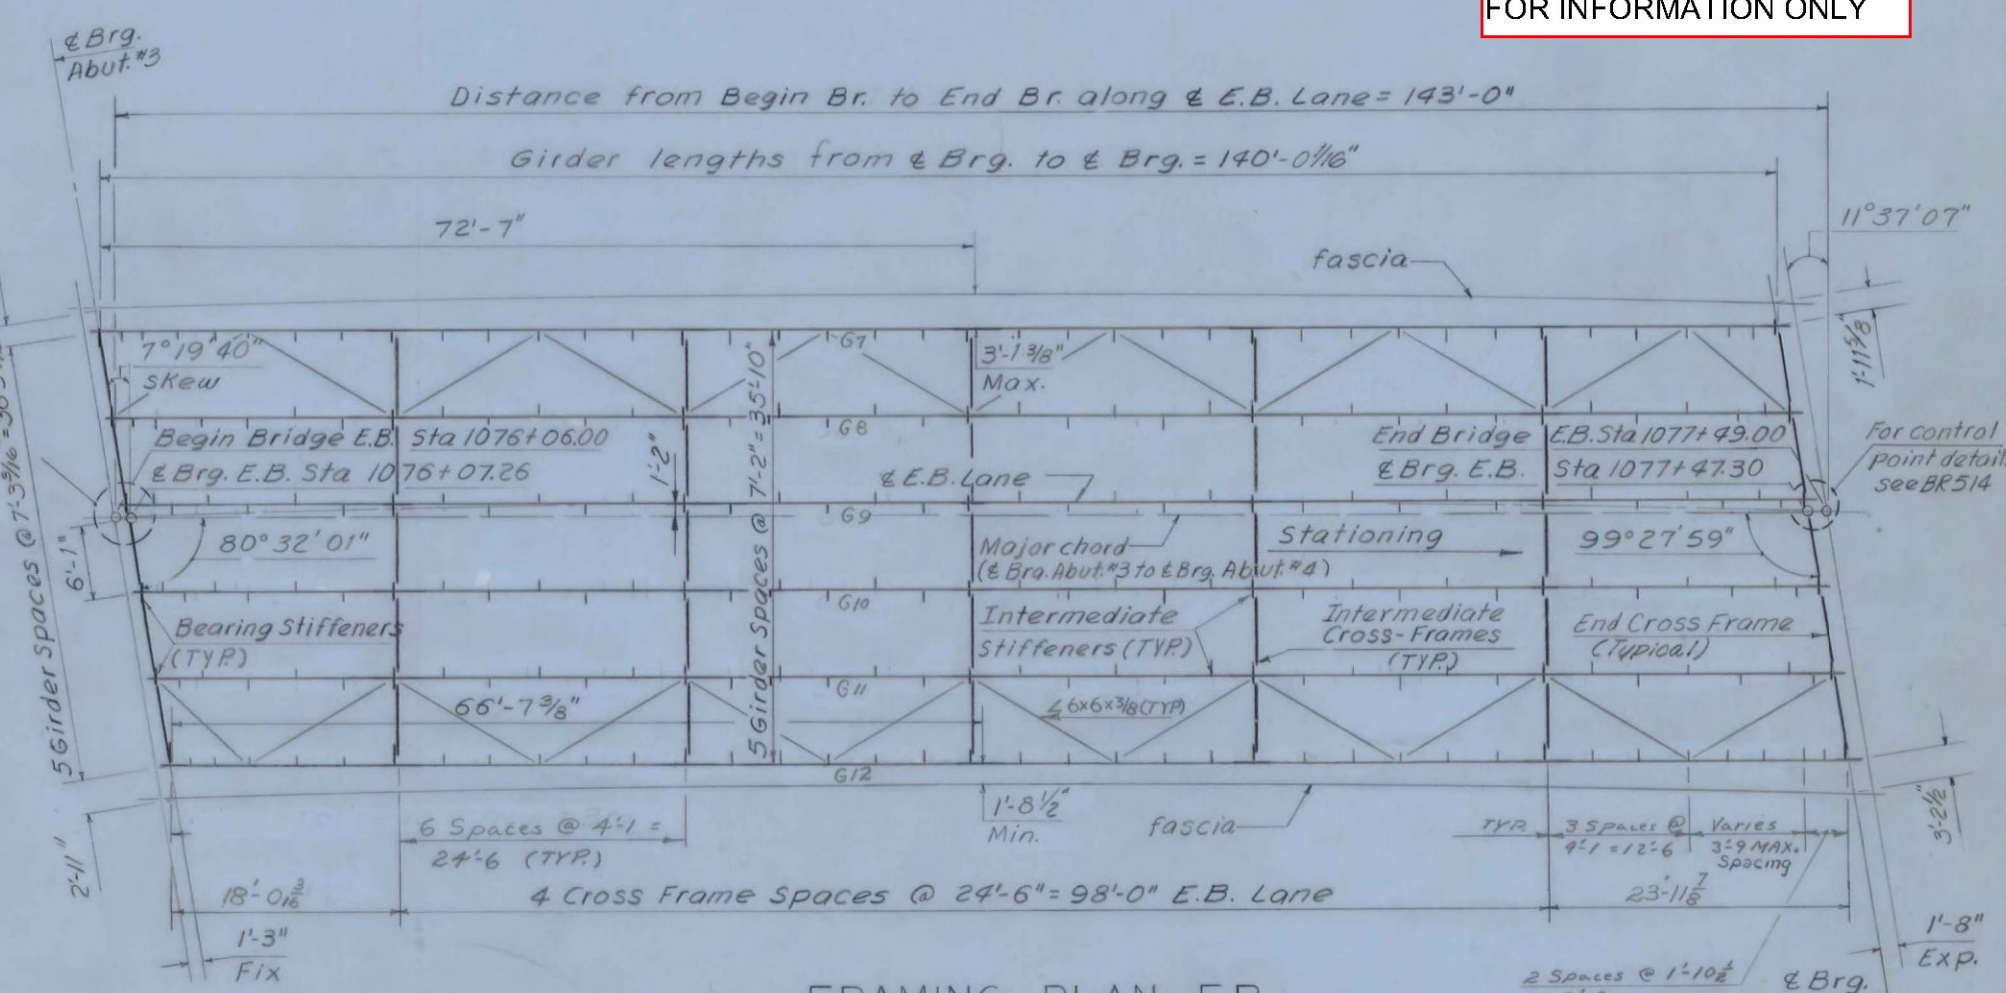 FOR INFORMATION ONLY
℄ Brg.
Abut. #3
Distance from Begin Br. to End Br. along ℄ E.B. Lane = 143'-0"
Girder lengths from ℄ Brg. to ℄ Brg. = 140'-0 1/16"
72'-7"
11°37'07"
fascia
1'-11 5/8"
7°19'40"
skew
G7
3'-1 3/8"
Max.
5 Girder Spaces @ 7'-2" = 35'-10"
5 Girder Spaces @ 7'-3 3/16"
G8
Begin Bridge E.B. Sta 1076+06.00
℄ Brg. E.B. Sta 1076+07.26
1'-2"
End Bridge E.B. Sta 1077+49.00
℄ Brg. E.B. Sta 1077+47.30
For control
point detail
see BR514
℄ E.B. Lane
G9
80°32'01"
6'-1"
Major chord
(℄ Brg. Abut. #3 to ℄ Brg. Abut. #4)
Stationing
99°27'59"
G10
Bearing Stiffeners
(TYP.)
Intermediate
Stiffeners (TYP.)
Intermediate
Cross-Frames
(TYP.)
End Cross Frame
(Typical)
G11
66'-7 3/8"
∠ 6x6x3/8 (TYP)
G12
1'-8 1/2"
Min.
fascia
2'-11"
3'-2 1/2"
6 Spaces @ 4'-1 =
24'-6 (TYP.)
TYP.
3 Spaces @
4'-1 = 12'-6
Varies
3'-9 MAX.
Spacing
18'-0 3/16
4 Cross Frame Spaces @ 24'-6" = 98'-0" E.B. Lane
23'-11 7/8
1'-3"
Fix
1'-8"
Exp.
2 Spaces @ 1'-10 1/2
℄ Brg.
FRAMING PLAN E.B.